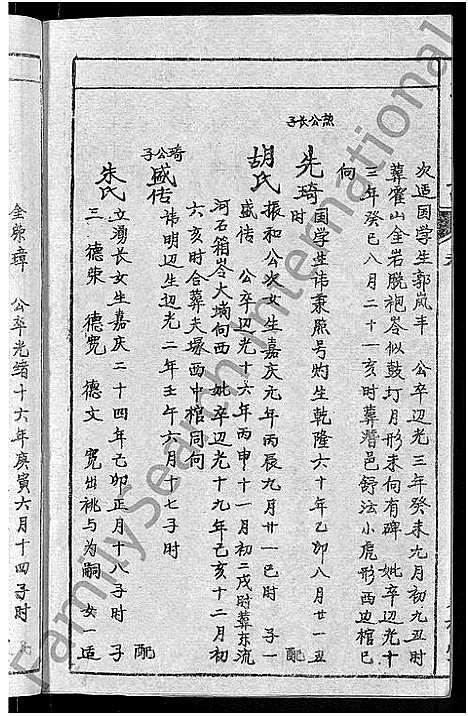 次适国学生郭岚丰 公卒辺光三年癸未九月初九丑时
葬霍山金岩脱袍岺似鼓灯月形未向有碑 妣卒辺光十
三年癸巳八月二十一亥时葬灊邑舒法小虎形西边棺巳
向
煎公长子
先琦 国学生讳秉熙号灼生乾隆六十年乙卯八月廿一丑
时 配
胡氏 振和公次女生嘉庆元年丙辰九月廿一巳时 子一
盛传 公卒辺光十六年丙申十一月初二戌时葬东流
河石箱岺大塆向西 妣卒辺光十九年己亥十二月初
六亥时合葬夫塚西中棺同向
琦公子
盛传 讳明辺生辺光二年壬午六月十七子时 配
朱氏 立湧长女生嘉庆二十四年己卯正月十八子时 子
三 德荣 德宽 德文 宽出祧与为嗣 女一适
金荣璋 公卒光绪十六年庚寅六月十四子时
FamilySearch International